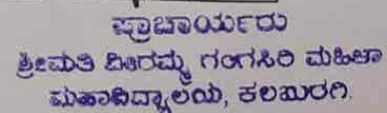 ಪ್ರಾಚಾರ್ಯರು
ಶ್ರೀಮತಿ ವೀರಮ್ಮ ಗಂಗಸಿರಿ ಮಹಿಳಾ
ಮಹಾವಿದ್ಯಾಲಯ, ಕಲಬುರಗಿ.